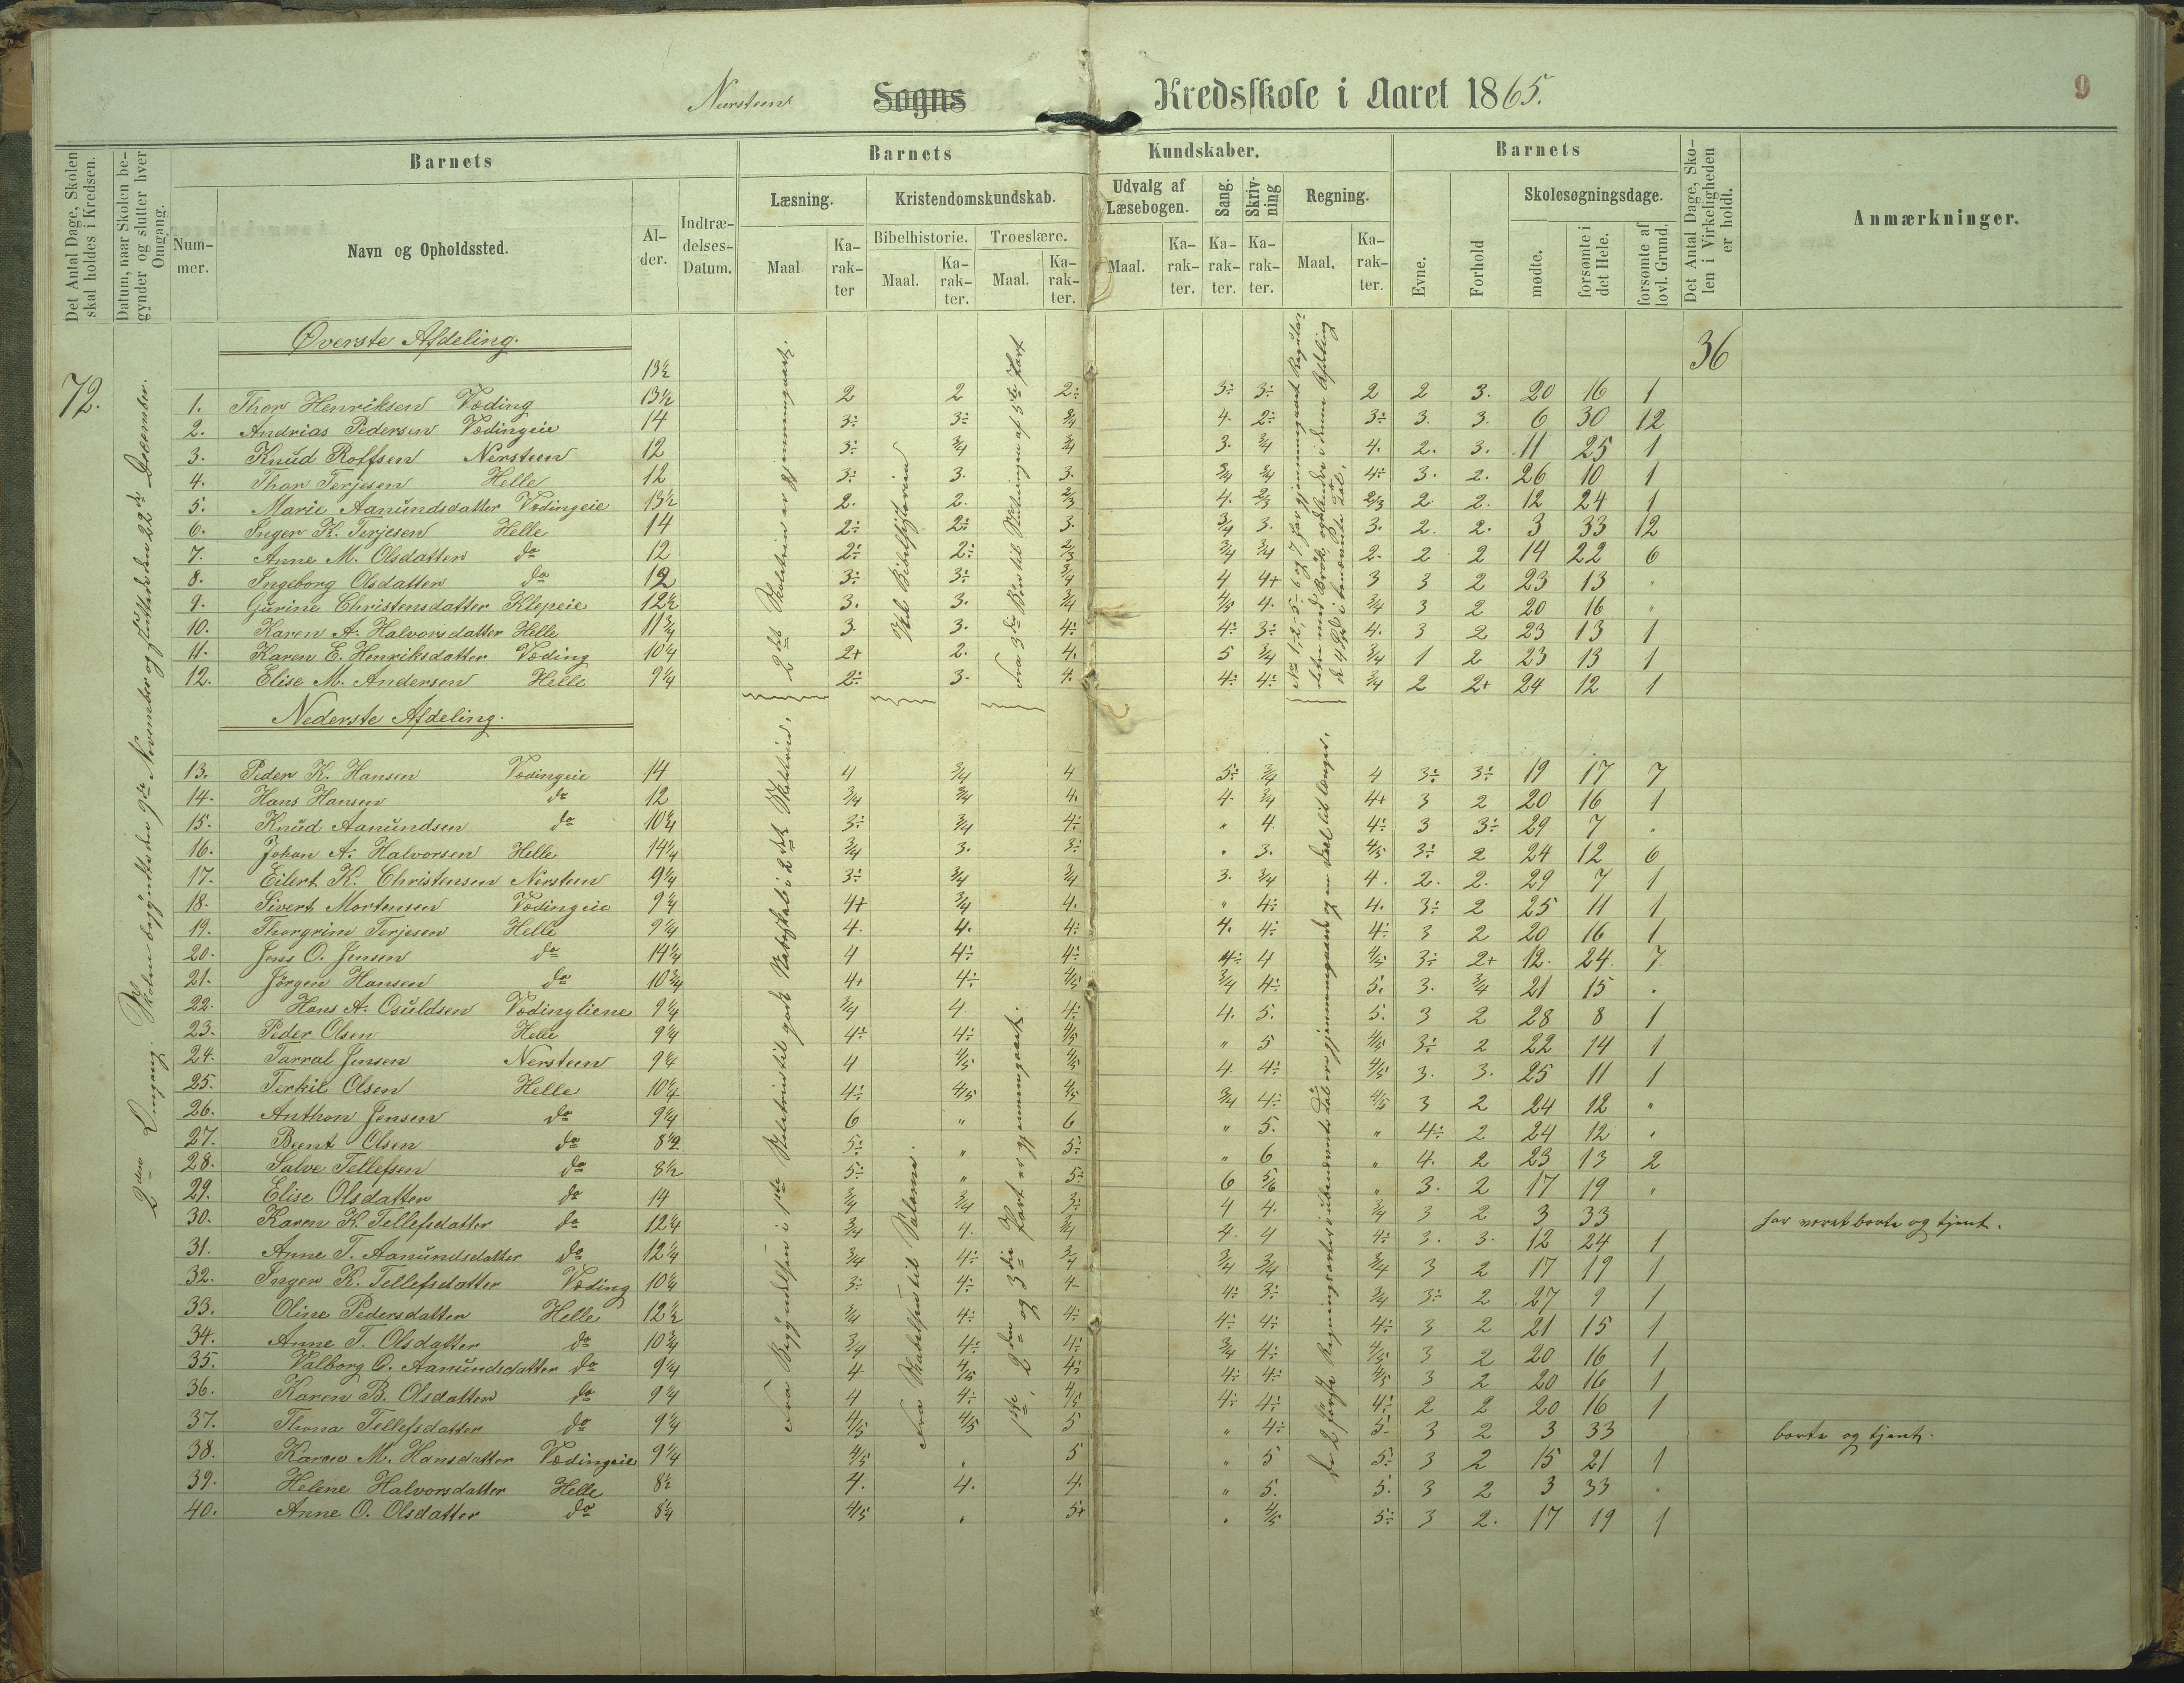 Nersteens Sogns Kredsskole i Aaret 1865.
9
Det Antal Dage, Skolen skal holdes i Kredsen.
Datum, naar Skolen begynder og slutter hver Omgang.
Barnets
Nummer.
Navn og Opholdssted.
Alder.
Indtrædelses-Datum.
Barnets Kundskaber.
Læsning.
Maal
Karakter
Kristendomskundskab.
Bibelhistorie.
Maal.
Karakter.
Troeslære.
Maal.
Karakter.
Udvalg af Læsebogen.
Maal.
Karakter.
Sang.
Karakter.
Skrivning
Karakter.
Regning.
Maal.
Karakter.
Barnets
Evne.
Forhold
Skolesøgningsdage.
mødte.
forsømte i det Hele.
forsømte af lovl. Grund.
Det Antal Dage, Skolen i Virkeligheden er holdt.
Anmærkninger.
72.
2den Omgang. Skolen begyndte den 9de November og sluttede den 22de December.
36
Øverste Afdeling.
13½
1. Thor Henriksen Væding 13½ 2 2 2÷ 3÷ 3÷ 2 2 3. 20 16 1
2. Andrias Pedersen Vædingeie 14 3÷ 3÷ 3/4 4. 2÷ 3÷ 3. 3. 6 30 12
3. Knud Roffsen Nersteen 12 3÷ 3/4 3/4 3. 3/4 4. 2. 3. 11 25 1
4. Thor Terjesen Helle 12 3÷ 3. 3. 3/4 3/4 4÷ 3. 2. 26 10 1
5. Marie Aanundsdatter Vædingeie 13½ 2. 2. 2/3 4. 2/3 2/3 2 2. 12 24 1
6. Inger K. Terjesen Helle 14 2÷ 2÷ 3. 3/4 3. 3. 2. 2. 3 33 12
7. Anne M. Olsdatter do 12 2÷ 2÷ 2/3 3/4 3/4 2. 2 2 14 22 6
8. Ingeborg Olsdatter do 12 3÷ 3÷ 3/4 4 4+ 3 3 2 23 13 "
9. Gurine Christensdatter Klepeie 12½ 3. 3. 3/4 4/5 4. 3/4 3 2 20 16 "
10. Karen A. Halvorsdatter Helle 11¾ 3. 3. 4÷ 4÷ 3÷ 4. 3 2 23 13 1
11. Karen E. Henriksdatter Væding 10¼ 2+ 2. 4. 5 3/4 3/4 1 2 23 13 1
12. Elise M. Andersen Helle 9¼ 2÷ 3. 4. 4÷ 4÷ 3/4 2 2+ 24 12 1
2det Skoletrin er gjennemgaaet.
Hele Bibelhistorien
Nederste Afdeling.
13. Peder K. Hansen Vædingeie 14 4 3/4 4 5÷ 3/4 4 3÷ 3÷ 19 17 7
14. Hans Hansen do 12 3/4 3/4 4. 4. 3/4 4+ 3 2 20 16 1
15. Knud Aanundsen do 10¾ 3÷ 3/4 4÷ " 4. 4÷ 3 3÷ 29 7 "
16. Johan A. Halvorsen Helle 14¼ 3/4 3. 3÷ " 3. 4/5 3÷ 2 24 12 6
17. Eilert K. Christensen Nersteen 9¼ 3÷ 3/4 3/4 3. 3/4 4. 2. 2. 29 7 1
18. Sivert Mortensen Vædingeie 9¼ 4+ 3/4 4. " 4÷ 4. 3÷ 2 25 11 1
19. Thorgrim Terjesen Helle 9¼ 4. 4. 4÷ 4. 4÷ 4÷ 3 2 20 16 1
20. Jens O. Jensen do 14¼ 4 4÷ 4÷ 4÷ 4 4/5 3÷ 2+ 12. 24. 7
21. Jörgen Hansen do 10¾ 4+ 4÷ 4/5 3/4 4÷ 5. 3. 3/4 21 15 "
22. Hans A. Osuldsen Vædingliene 9¼ 3/4 4 4÷ 4. 5. 5. 3 2 28 8 1
23. Peder Olsen Helle 9¼ 4÷ 4÷ 4/5 " 5 4/5 3÷ 2 22 14 1
24. Tarral Jensen Nersteen 9¼ 4 4/5 4/5 4 4÷ 4/5 3. 3. 25 11 1
25. Terkil Olsen Helle 10¼ 4÷ 4/5 4/5 3/4 4÷ 4/5 3 2 24 12 "
26. Anthon Jensen do 9¼ 6 " 6 " 5. " 4÷ 2 24 12 "
27. Beent Olsen do 8½ 5÷ " 5÷ " 6 " 4. 2 23 13 2
28. Salve Tellefsen do 8½ 5÷ " 5÷ 6 5/6 " 3. 2 17 19 "
29. Elise Olsdatter do 14 3/4 3/4 3÷ 4 4. 3/4 3 2 3 33 har været borte og tjent.
30. Karen K. Tellefsdatter do 12¼ 3/4 4. 3/4 4. 4 4÷ 3. 3. 12 24 1
31. Anne T. Aanundsdatter do 12¼ 3/4 4÷ 3/4 3/4 3/4 3/4 3 2 17 19 1
32. Inger K. Tellefsdatter Væding 10¼ 3÷ 4÷ 4- 4÷ 3÷ 3/4 3÷ 2 27 9 1
33. Oline Pedersdatter Helle 12½ 3/4 4÷ 4÷ 4÷ 4÷ 4÷ 3 2 21 15 1
34. Anne T. Olsdatter do 10¾ 3/4 4÷ 4÷ 3/4 4÷ 4/5 3 2 20 16 1
35. Valborg O. Aanundsdatter do 9¼ 4 4/5 4÷ 4÷ 4÷ 4/5 3 2 20 16 1
36. Karen B. Olsdatter do 9¼ 4 4÷ 4/5 4÷ 4÷ 4÷ 2 2 20 16 1
37. Thona Tellefsdatter do 9¼ 4/5 4/5 5 " 4÷ 5- 3 2 3 33 borte og tjent.
38. Karen M. Hansdatter Vædingeie 9¼ 4/5 " 5 " 5 5÷ 3 2 15 21 1
39. Helene Halvorsdatter Helle 8½ 4. 4. 4. " 5. 5. 3 2 3 33 "
40. Anne O. Olsdatter do 8¼ 4/5 " 5+ " 4/5 5÷ 3 2. 17 19 1
Fra Begyndelsen i 1ste Skoletrin til godt Skoletrin.
Fra Skabelsen til
1ste, 2den og 3die Part er gjennemgaaet.